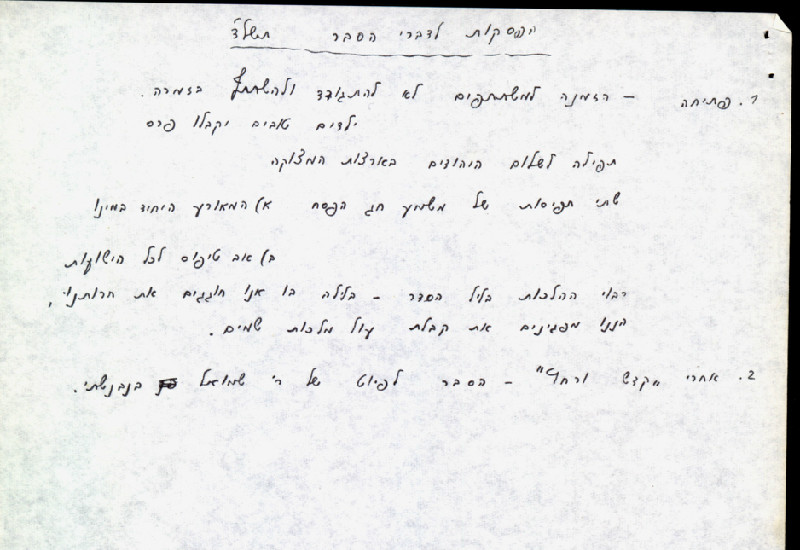 הפסקות לדברי הסבר תשל"ד
1. פתיחה - הזמנה למשתתפים לא להתגודד ולהשתתף בזמרה.
ילדים טובים יקבלו פרס
תפילה לשלום היהודים בארצות המצוקה
שתי תפיסות של משמע חג הפסח א) המאורע היחיד במינו
ב) אב טיפוס לכל הישועות
רבוי ההלכות בליל הסדר - בלילה בו אנו חוגגים את חרותנו,
הננו מפגינים את קבלת עול מלכות שמים.
2. אחרי "קדש ורחץ" - הסבר לפיוט של ר' שמואל בנבנשתי.